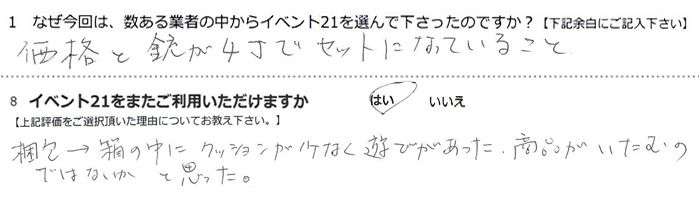 1 なぜ今回は、数ある業者の中からイベント21を選んで下さったのですか？【下記余白にご記入下さい】
価格と銃が4寸でセットになっていること
8 イベント21をまたご利用いただけますか はい いいえ
【上記評価をご選択頂いた理由についてお教え下さい。】
梱包→箱の中にクッションが少なく遊びがあった、商品がいたむの
ではないかと思った。